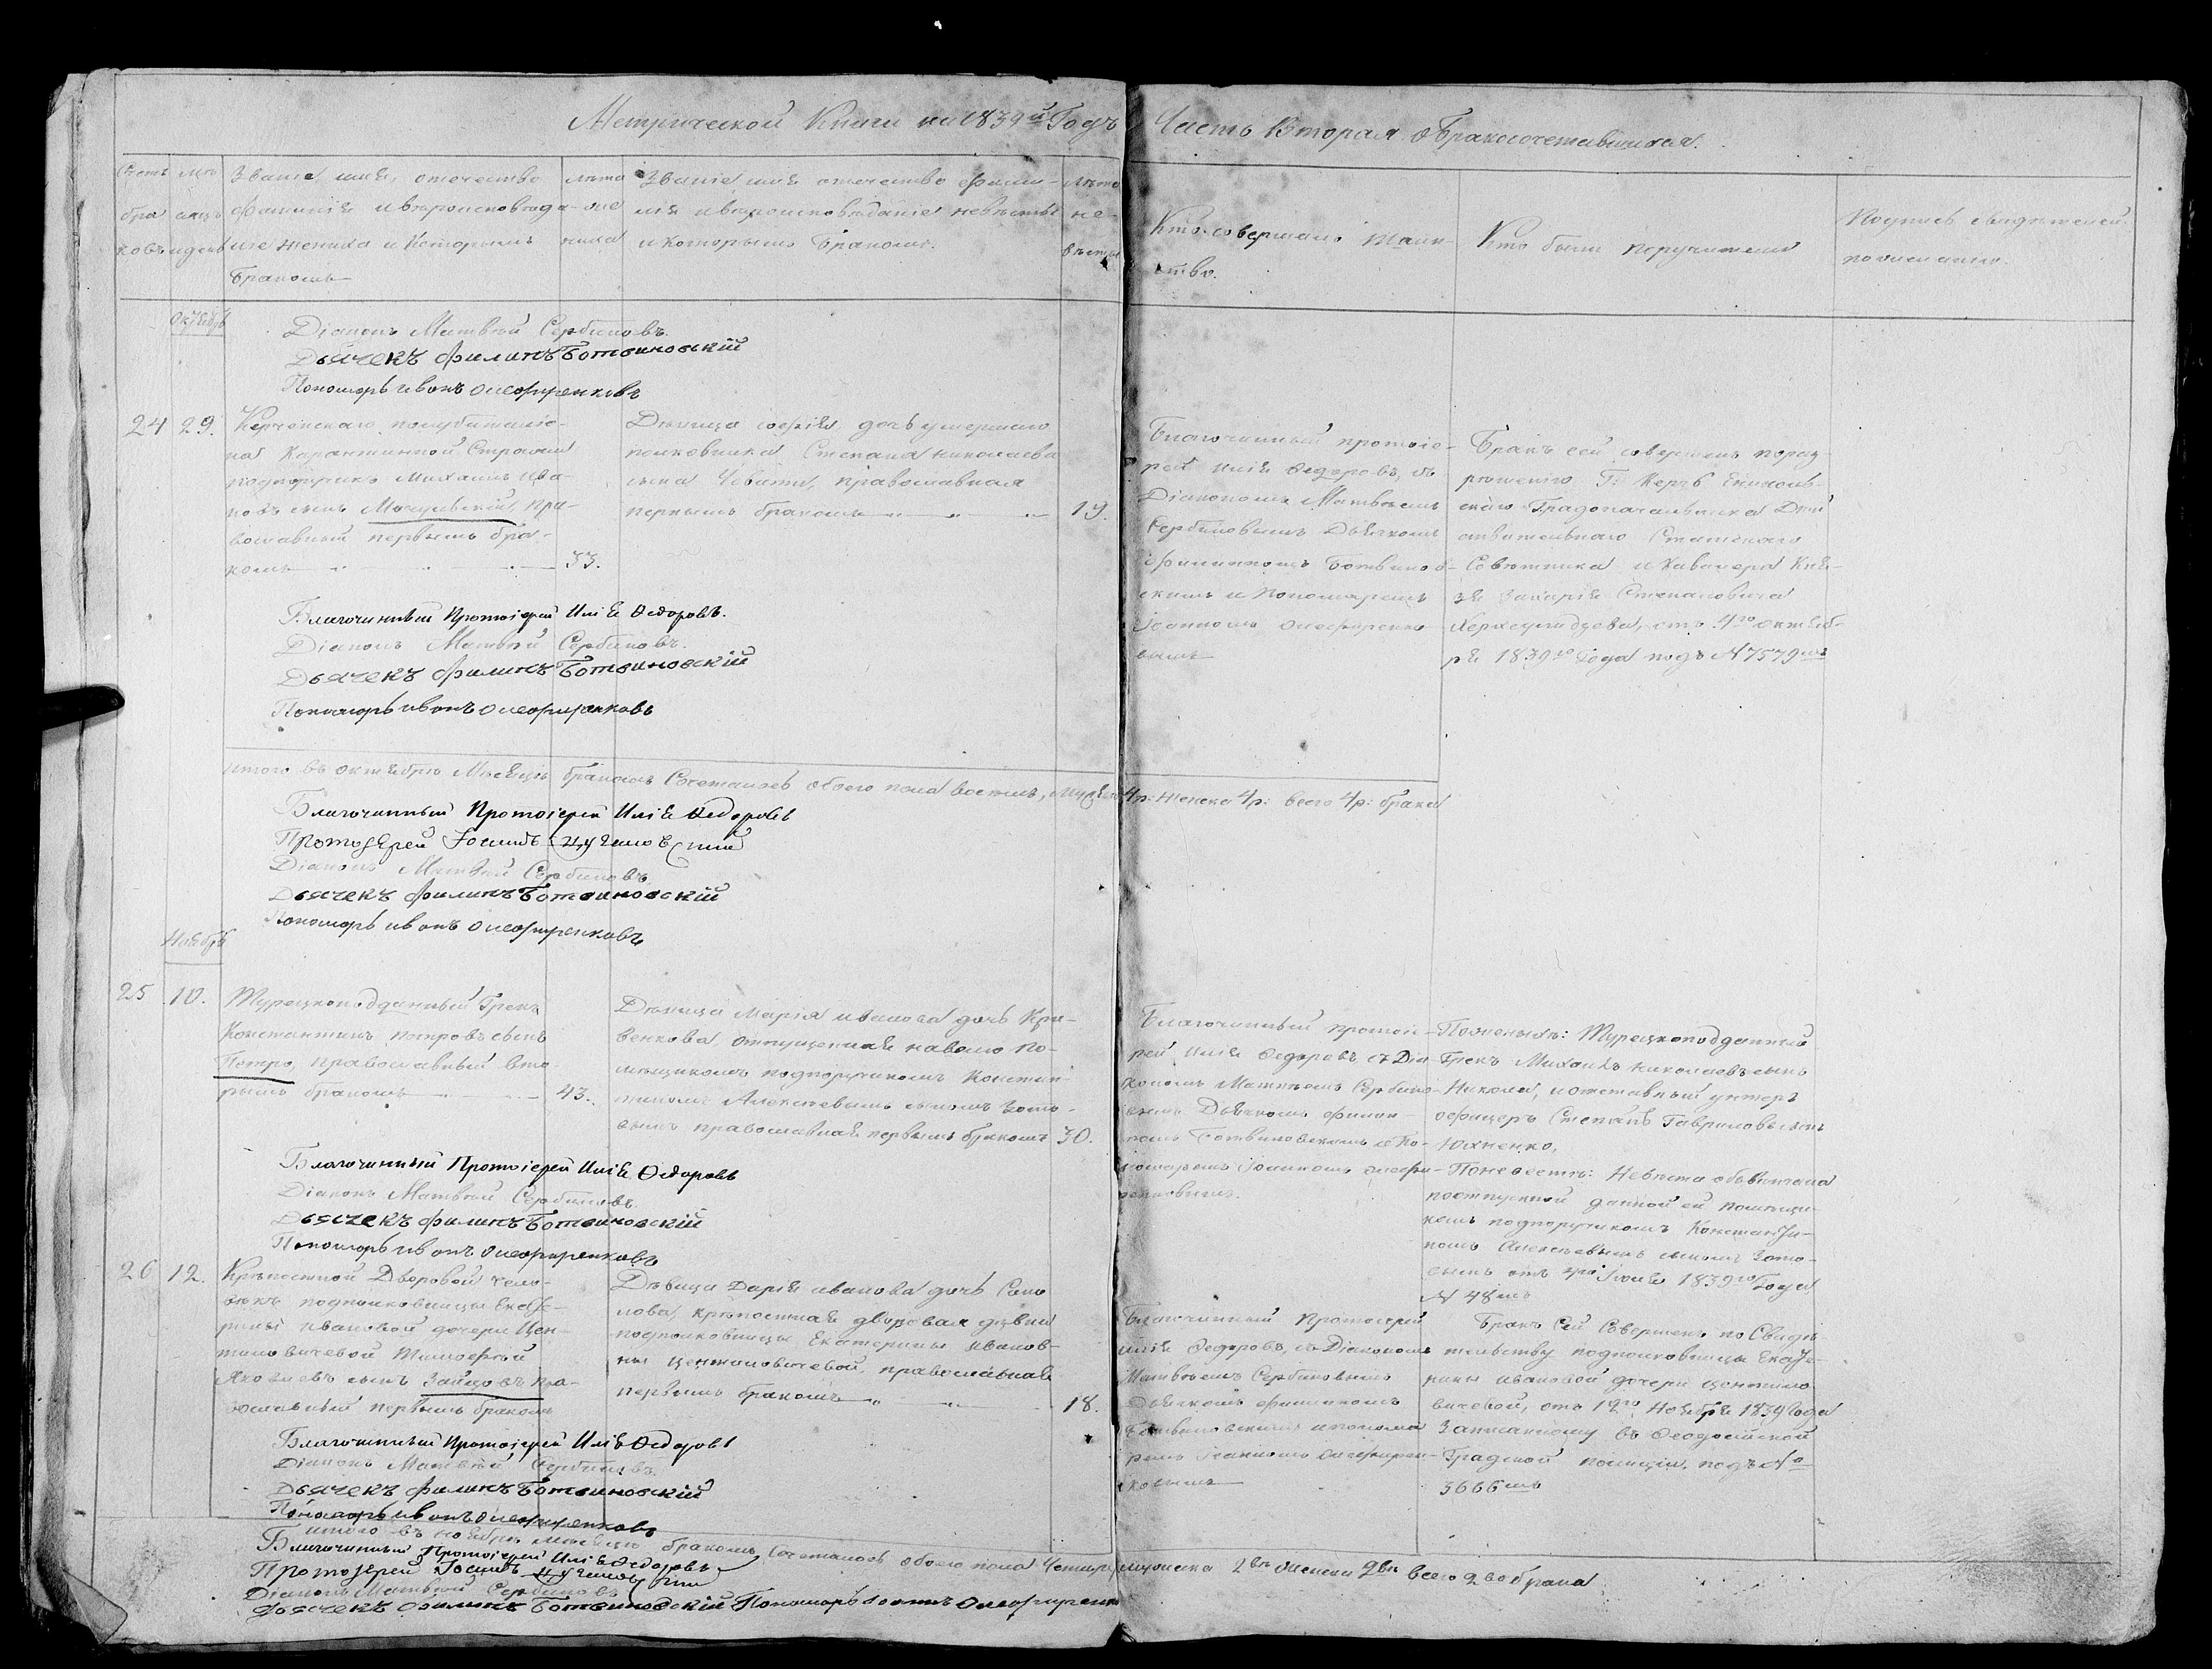 Метрической Книги на 1839й Годъ Часть Вторая о бракосочетавшихся.
Счетъ браковъ
Званіе, имя, отечество
лѣта
Званіе имя отечество фами-
лѣта
фамилія и вѣроисповѣда-
лія и вѣроисповѣданіе невѣсты
не-
ніе жениха и Которымъ
ниха
и которымъ бракомъ.
вѣсты
Бракомъ
Кто совершалъ Таин-
ство.
Кто были поручители
Подпись свидѣтелей
по желанію.
Октябрь
Діаконъ Матвѣй Сербиновъ.
Дьячекъ Филипъ Ботвиновскій
Пономорь Иванъ Онофріенковъ
24 29.
Керченскаго полубаталіо-
на Карантинной Стражи
подпоручикъ Михаилъ Ива-
новъ сынъ
пра-
вославный первымъ бра-
комъ 33.
Дѣвица Софія, дочь умершаго
полковника Степана Николаева
сына
православная
первымъ бракомъ 19.
Благочинный протоіе-
рей Илія Федоровъ, съ
Діакономъ Матвѣемъ
Сербиновымъ Дьячкомъ
Филиппомъ Ботвинов-
скимъ и Пономаремъ
Іоанномъ Онофріенко-
вымъ
Бракъ сей совершенъ по раз-
рѣшенію Г. Керчь Еникольскаго
Градоначальника Дѣй
ствительнаго Статскаго
Совѣтника и Кавалера Кня-
зя Захарія Степановича
Херхеулидзева, отъ 4го октяб-
ря 1839го Года подъ № 7579мъ
Благочинный Протоіерей Илія Федоровъ.
Діаконъ Матвѣй Сербиновъ.
Дьячекъ Филипъ Ботвиновскій
Пономорь Иванъ Онофріенковъ
Итого въ октябрѣ Мѣсяцѣ бракомъ Сочеталось обоего пола восемь, Мужеска 4р: женска 4р: всего 4р: брака
Благочинный Протоіерей Илія Федоровъ
Протоіерей Іосифъ
Діаконъ Матвѣй Сербиновъ
Дьячекъ Филипъ Ботвиновскій
Пономорь Иванъ Онофріенковъ
Ноябрь
25 10.
Турецкоподданный Грекъ
Константинъ Петровъ сынъ
Петро, православный вто-
рымъ бракомъ 43.
Дѣвица Марія Иванова дочь Кри-
венкова, отпущенная на волю по-
мѣщикомъ подпоручикомъ Констан-
тиномъ Алексѣевымъ сыномъ Зото-
вымъ православная первымъ бракомъ 30.
Благочинный протоіе-
рей Илія Федоровъ съ Діа-
кономъ Матвѣемъ Сербино-
вымъ Дьячкомъ Филип-
помъ Ботвиновскимъ и По-
номаремъ Іоанномъ Онофрі-
енковымъ.
По женихѣ: Турецкоподданный
Грекъ Михаилъ Николаевъ сынъ
Николай, и отставный унтеръ
офицеръ Степанъ Гавриловъ сынъ
Юхненко,
По невѣстѣ: Невѣста обвѣнчана
по отпускной данной ей помѣщи-
комъ подпоручикомъ Константи-
номъ Алексѣевымъ сыномъ Зото-
вымъ отъ Іюня 1839го Года
№ 48мъ
Благочинный Протоіерей Илія Федоровъ
Діаконъ Матвѣй Сербиновъ.
Дьячекъ Филипъ Ботвиновскій
Пономорь Иванъ Онофріенковъ
26 12.
Крѣпостной Дворовой чело-
вѣкъ подполковницы Екате-
рины Ивановой дочери Цен-
тиловичевой Тимофей
Яковлевъ сынъ Зайцовъ пра-
вославный первымъ бракомъ
Дѣвица Дарія Иванова дочь
крѣпостная дворовая дѣвка
подполковницы Екатерины Иванов-
ны Центиловичевой, православная
первымъ бракомъ 18.
Благочинный Протоіерей
Илія Федоровъ, съ Діакономъ
Матвѣемъ Сербиновымъ
Дьячкомъ Филипомъ
Ботвиновскимъ и понома
ремъ Іоанномъ Онофріен-
ковымъ
Бракъ Сей Совершенъ по Свидѣ-
тельству подполковницы Екате-
рины Ивановой дочери Центило-
вичевой, отъ 12го Ноября 1839 Года
Записанному въ Феодосійской
Градской полиціи, подъ №
3666мъ
Благочинный Протоіерей Илія Федоровъ
Діаконъ Матвѣй Сербиновъ.
Дьячекъ Филипъ Ботвиновскій
Пономорь Иванъ Онофріенковъ
Итого въ ноябрѣ мѣсяцѣ бракомъ Сочеталось обоего пола Четыре, мужеска 2ва женска 2вѣ всего 2ва брака
Благочинный Протоіерей Илія Федоровъ
Протоіерей Іосифъ
Діаконъ Матвѣй Сербиновъ
Дьячекъ Филипъ Ботвиновскій Пономорь Іоаннъ Онофріенко